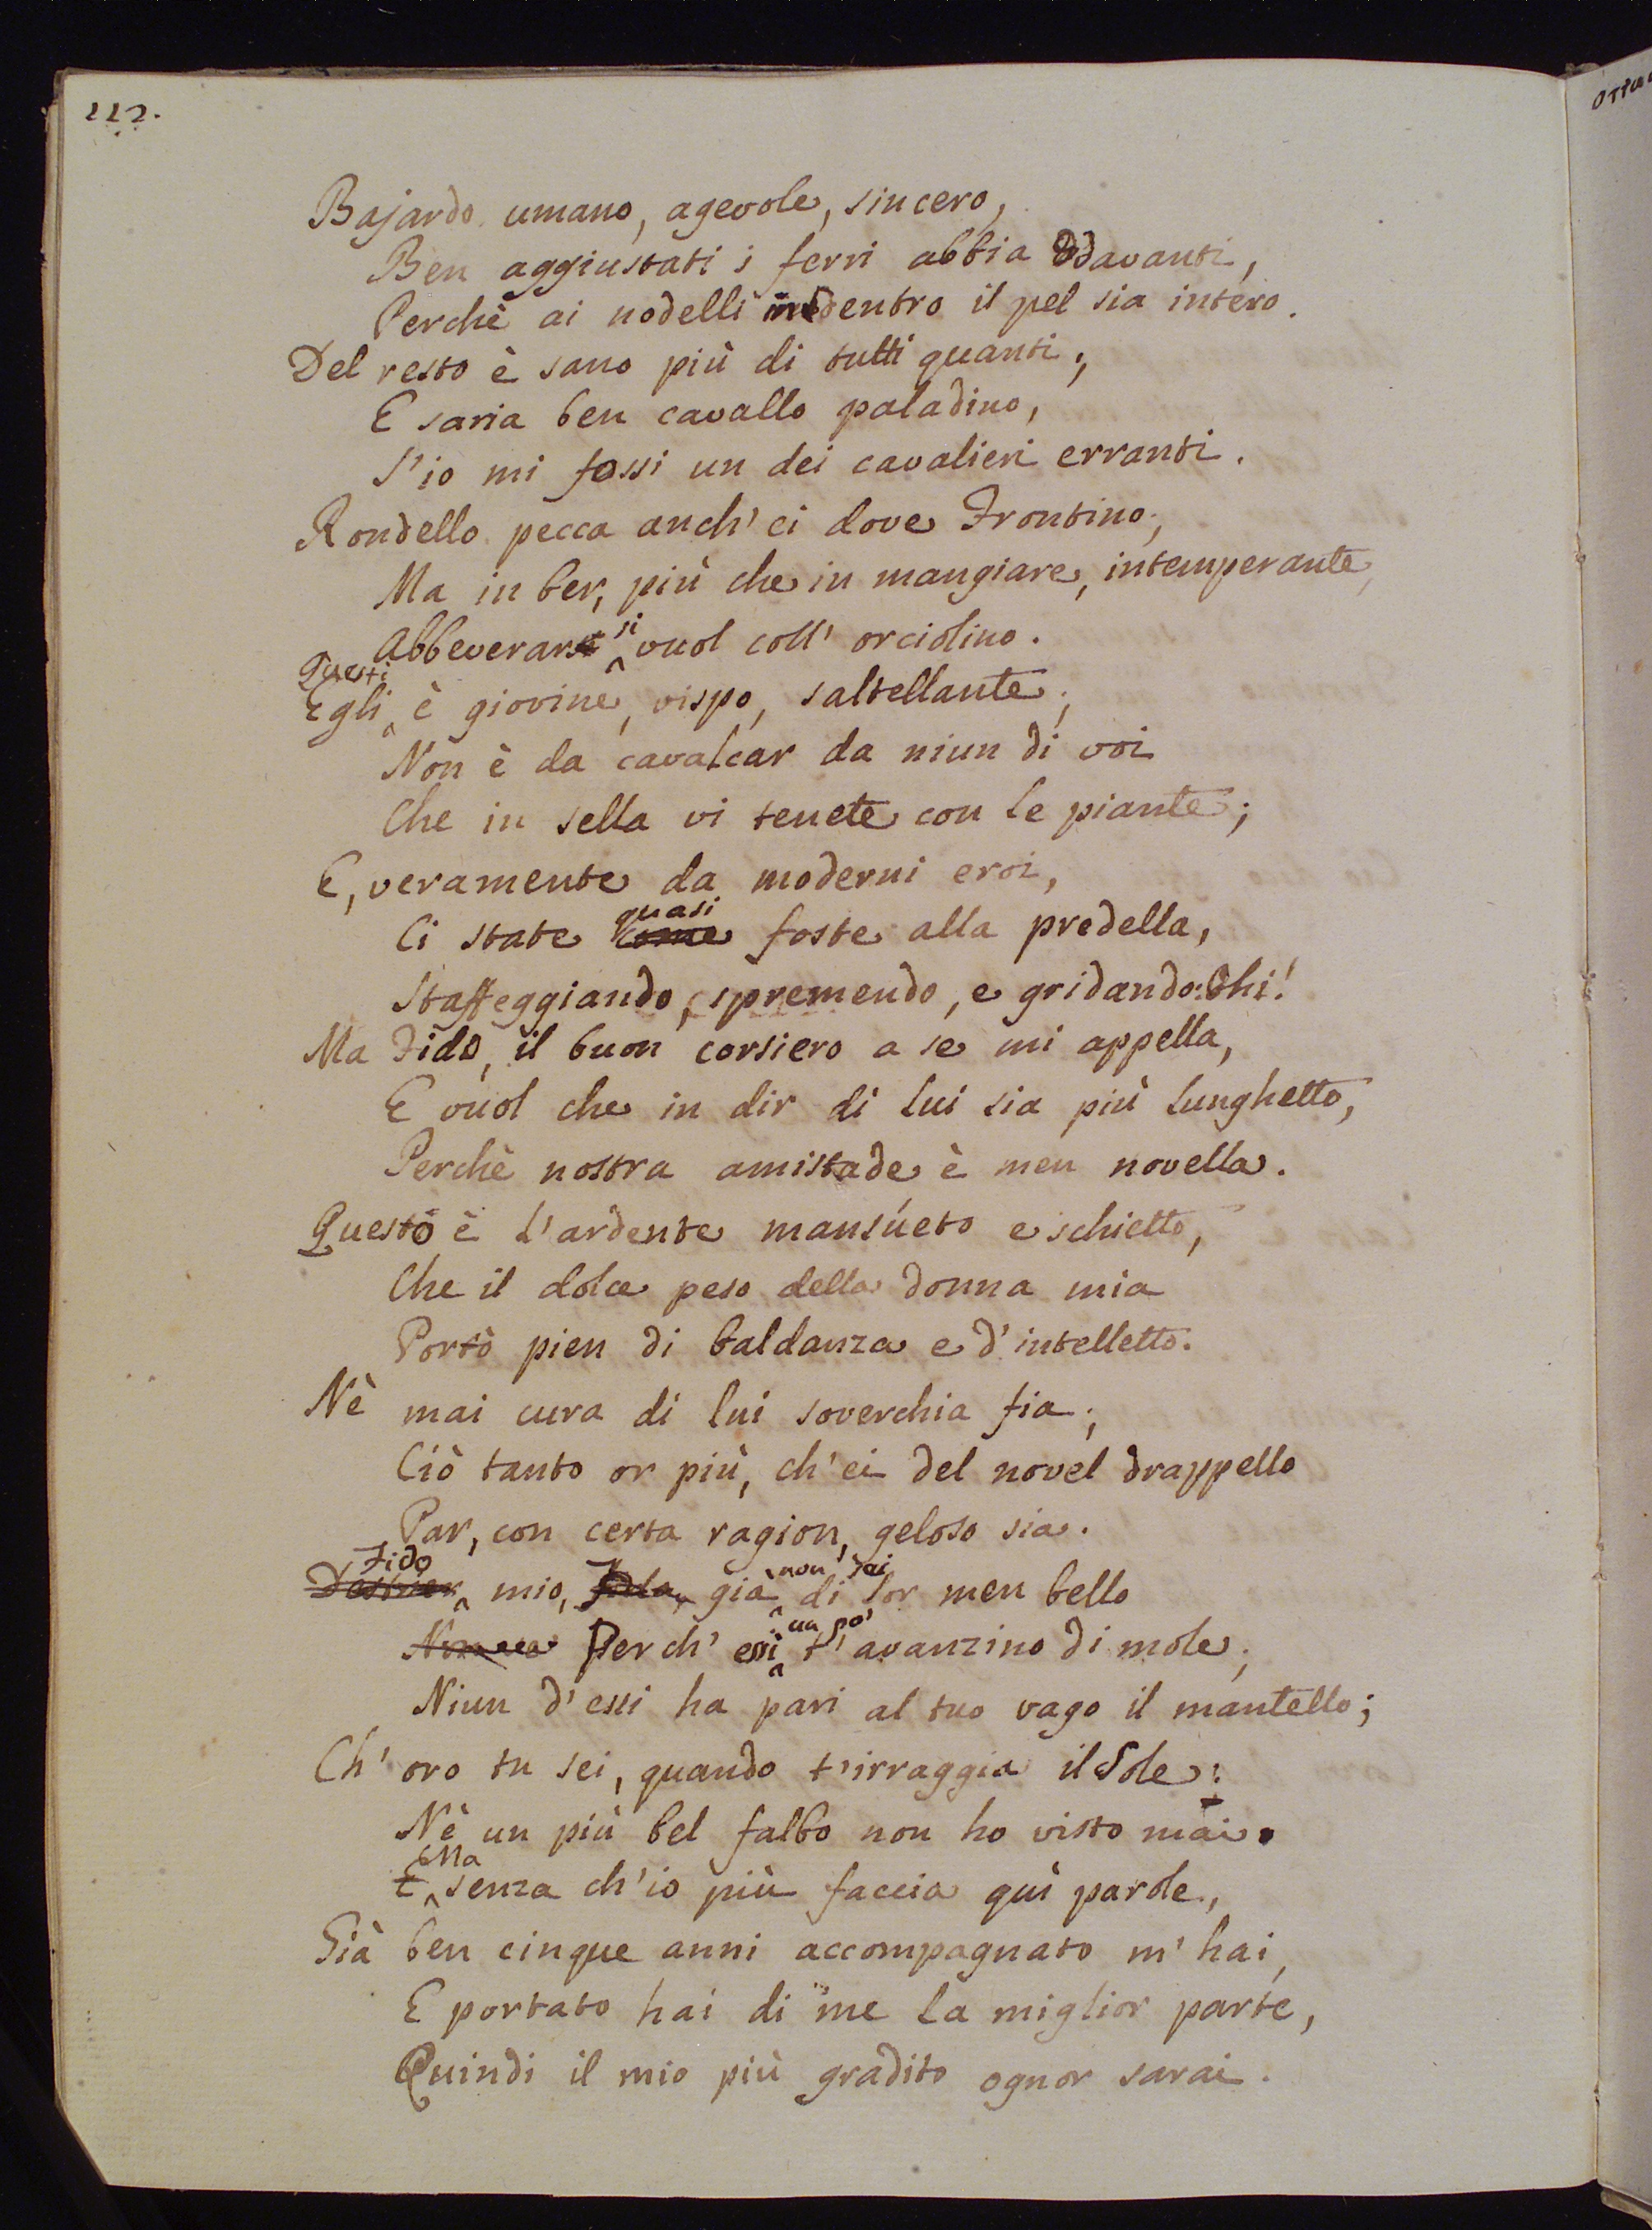 112.
Bajardo umano, agevole, sincero,
Ben aggiustati i ferri abbia davanti,
Perchè ai nodelli indentro il pel sia intero.
Del resto è sano più di tutti quanti;
E saria ben cavallo paladino,
S'io mi fossi un dei cavalieri erranti.
Rondello pecca anch'ei dove Frontino;
Ma in ber, più che in mangiare, intemperante,
si
Abbeverar vuol coll' orciolino.
Questi
Egli è giovine, vispo, saltellante;
Non è da cavalcar da niun di voi
Che in sella vi tenete con le piante;
E, veramente da moderni eroi,
quasi
Ci state come foste alla predella,
Staffeggiando, spremendo, e gridando: Ohi!
Ma Fido, il buon corsiero a se mi appella,
E vuol che in dir di lui sia più lunghetto,
Perchè nostra amistade è men novella.
Questo è l'ardente mansúeto e schietto,
Che il dolce peso della donna mia
Portò pien di baldanza e d'intelletto.
Nè mai cura di lui soverchia fia;
Ciò tanto or più, ch'ei del novel drappello
Par, con certa ragion, geloso sia.
Fido non sei
Destrier mio, già di lor men bello
un po'
Perch' essi t'avanzino di mole;
Niun d'essi ha pari al tuo vago il mantello;
Ch' oro tu sei, quando t'irraggia il Sole:
Nè un più bel falbo non ho visto mai.
Ma
E senza ch'io più faccia quì parole,
Già ben cinque anni accompagnato m' hai,
E portato hai di me la miglior parte,
Quindi il mio più gradito ognor sarai.